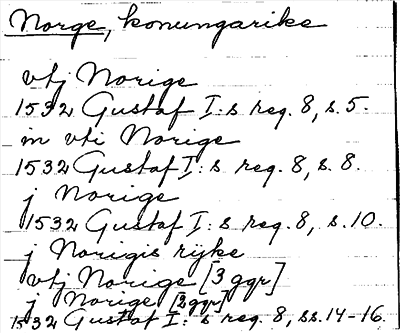 Norge, konungarike
vtj Norige
1532 Gustaf I:s reg. 8, s. 5.
in vti Norige
1532 Gustaf I:s reg. 8, s. 8.
j Norige
1532 Gustaf I:s reg. 8, s. 10.
j Norigis rijke
vtj Norige [3 ggr]
j Norige [3 ggr]
1532 Gustaf I:s reg. 8, ss. 14-16.